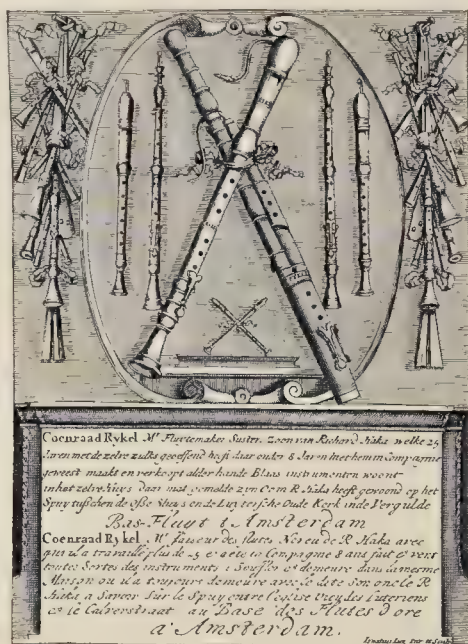 Coenraad Rykel Mr Fluytemaker Suster Zoon van Richard Haka welke 25
Jaren met de zelve zulks geeffend heeft daar onder 8 Jaren met hem in Compagnie
geweest maakt en verkoopt alder hande Blaas instrumenten woont
in het zelve Huys daar met gemelde zyn Oom R Haka heeft gewoond op het
Spuy tusschen de Osse Sluys en de Luyterische Oude Kerk in de Vergulde
Bas-Fluyt t Amsterdam
Coenraad Rykel Mr faiseur des flutes Neveu de R Haka avec
qui il a travaillé plus de 25 et été en Compagnie 8 ans fait et vent
toutes Sortes des instruments à Souffler et demeure dans la mesme
Maison ou il a toujours demeure avec le dit Son oncle R
Haka a Savoir Sur le Spuy entre l'eglise Vieu des Luteriens
et le Calverstraat au Base des Flutes d'ore
a Amsterdam.
Ignatius Lux